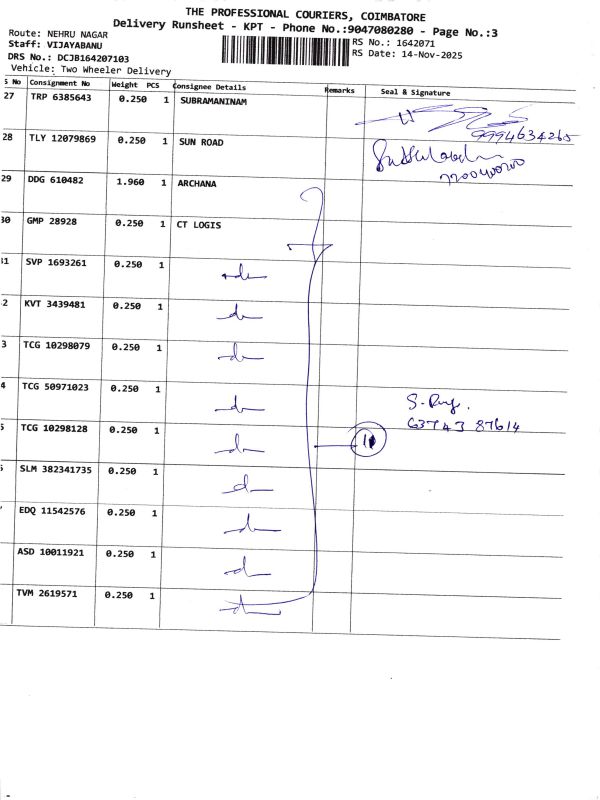 THE PROFESSIONAL COURIERS, COIMBATORE
Delivery Runsheet - KPT - Phone No.:9047080280 - Page No.:3
Route: NEHRU NAGAR
RS No.: 1642071
Staff: VIJAYABANU
RS Date: 14-Nov-2025
DRS No.: DCJB164207103
Vehicle: Two Wheeler Delivery
S No Consignment No Weight PCS Consignee Details Remarks Seal & Signature
27 TRP 6385643 0.250 1 SUBRAMANINAM
9994634265
28 TLY 12079869 0.250 1 SUN ROAD
7200400200
29 DDG 610482 1.960 1 ARCHANA
30 GMP 28928 0.250 1 CT LOGIS
31 SVP 1693261 0.250 1
2 KVT 3439481 0.250 1
3 TCG 10298079 0.250 1
4 TCG 50971023 0.250 1
63743 87614
5 TCG 10298128 0.250 1
11
SLM 382341735 0.250 1
EDQ 11542576 0.250 1
ASD 10011921 0.250 1
TVM 2619571 0.250 1